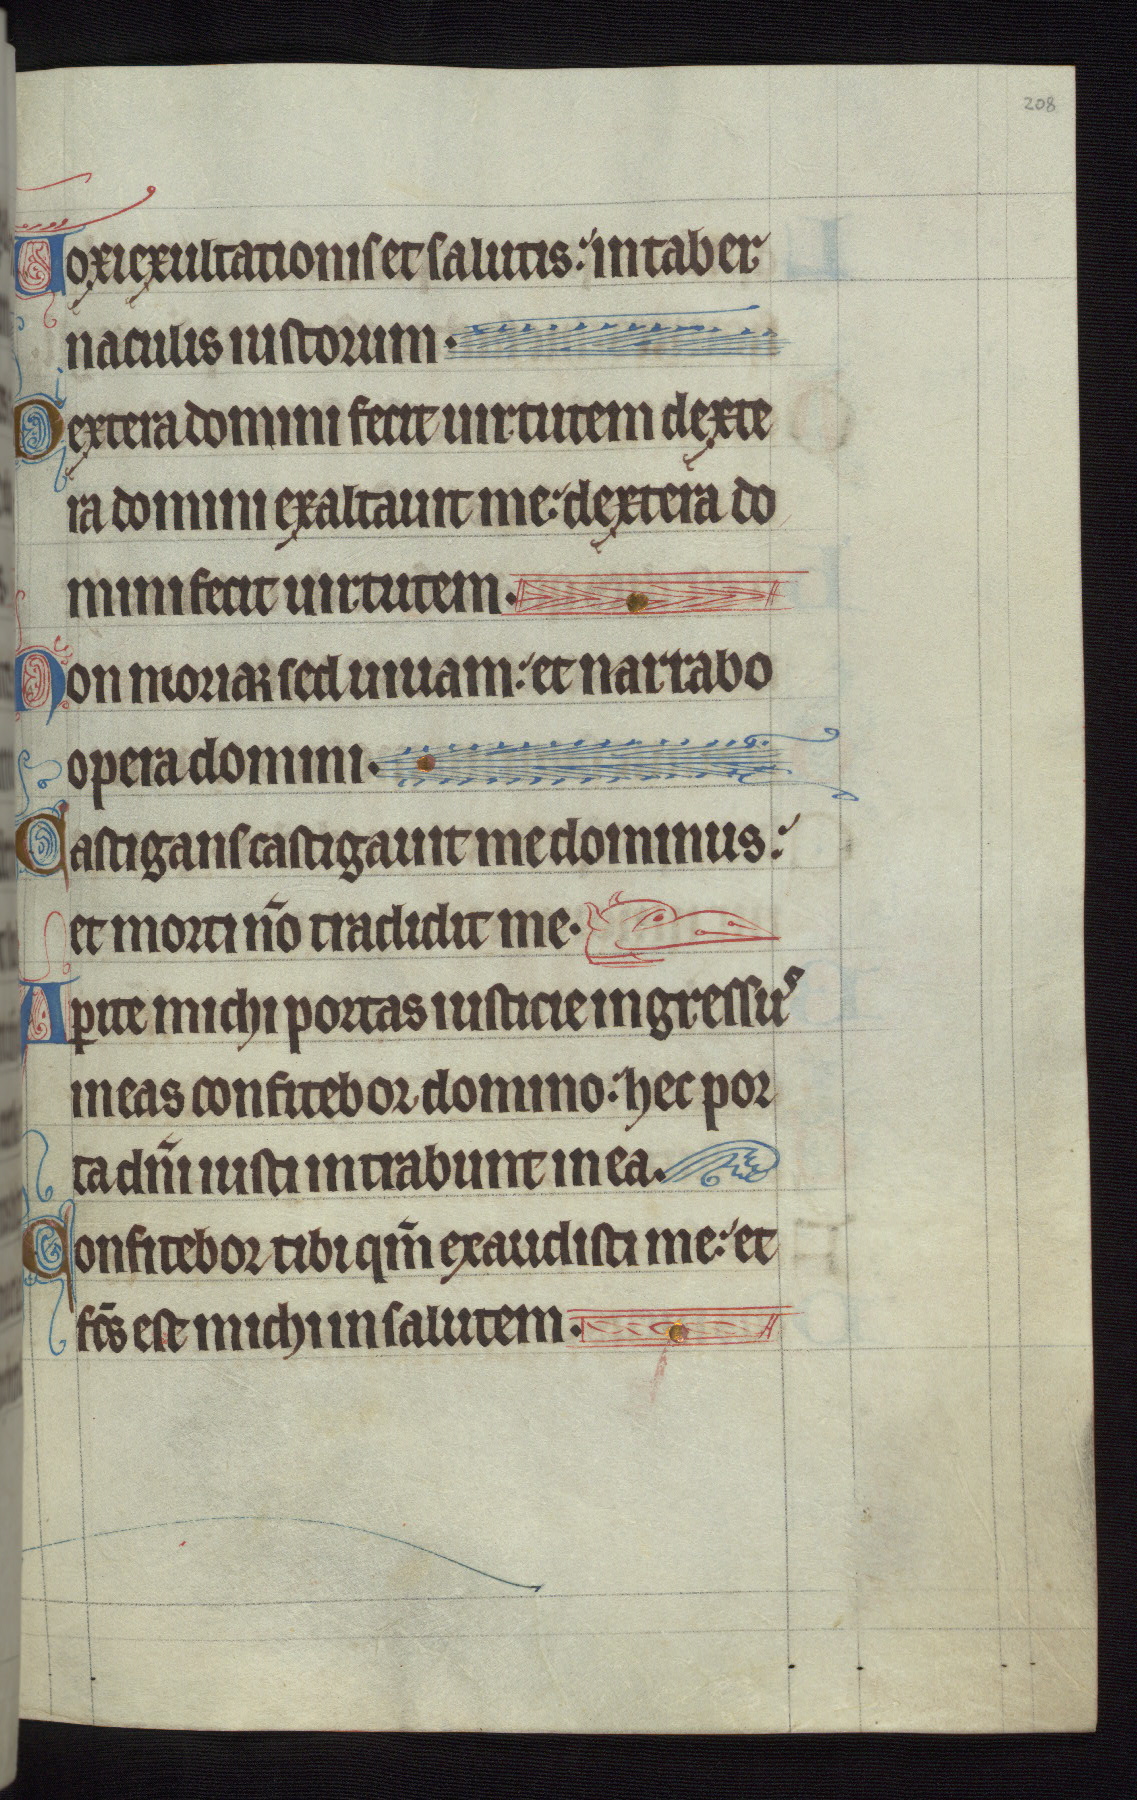 208
Uox exultationis et salutis: in taber
naculis iustorum.
Dextera domini fecit uirtutem dexte
ra domini exaltauit me: dextera do
mini fecit uirtutem.
Non moriar sed uiuam: et narrabo
opera domini.
Castigans castigauit me dominus:
et morti nō tradidit me.
Aꝑite michi portas iusticie ingressuˢ
in eas confitebor domino: hec por
ta dn̄i iusti intrabunt in ea.
Confitebor tibi qm̄ exaudisti me: et
fc̄s est michi in salutem.